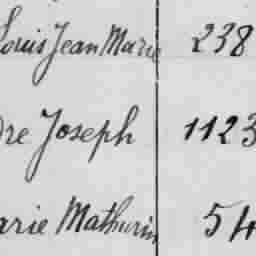 Louis Jean Marie 238
dre Joseph 1123
arie Mathurin 54